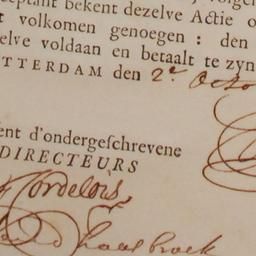 ceptant bekent dezelve Actie o
t volkomen genoegen : den
elve voldaan en betaalt te zyn
TTERDAM den 2e Octo
ent d'ondergeschrevene
DIRECTEURS
Cordelois